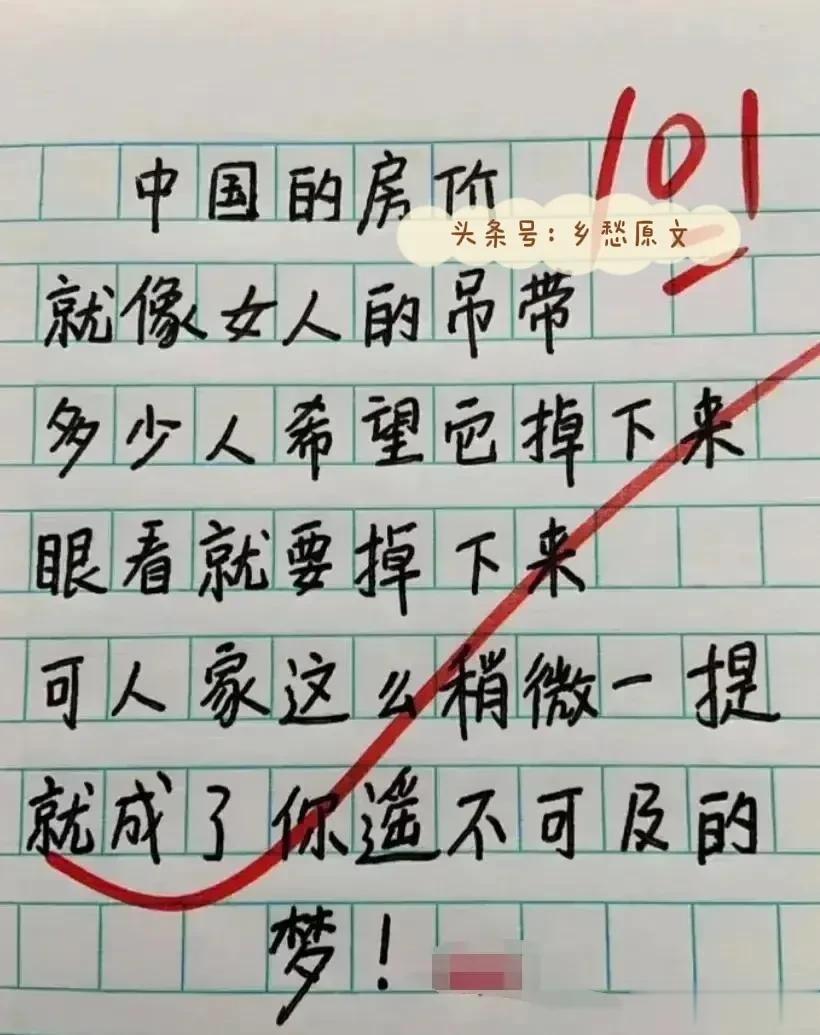 101
中国的房价
头条号：乡愁原文
就像女人的吊带
多少人希望它掉下来
眼看就要掉下来
可人家这么稍微一提
就成了你遥不可及的
梦！